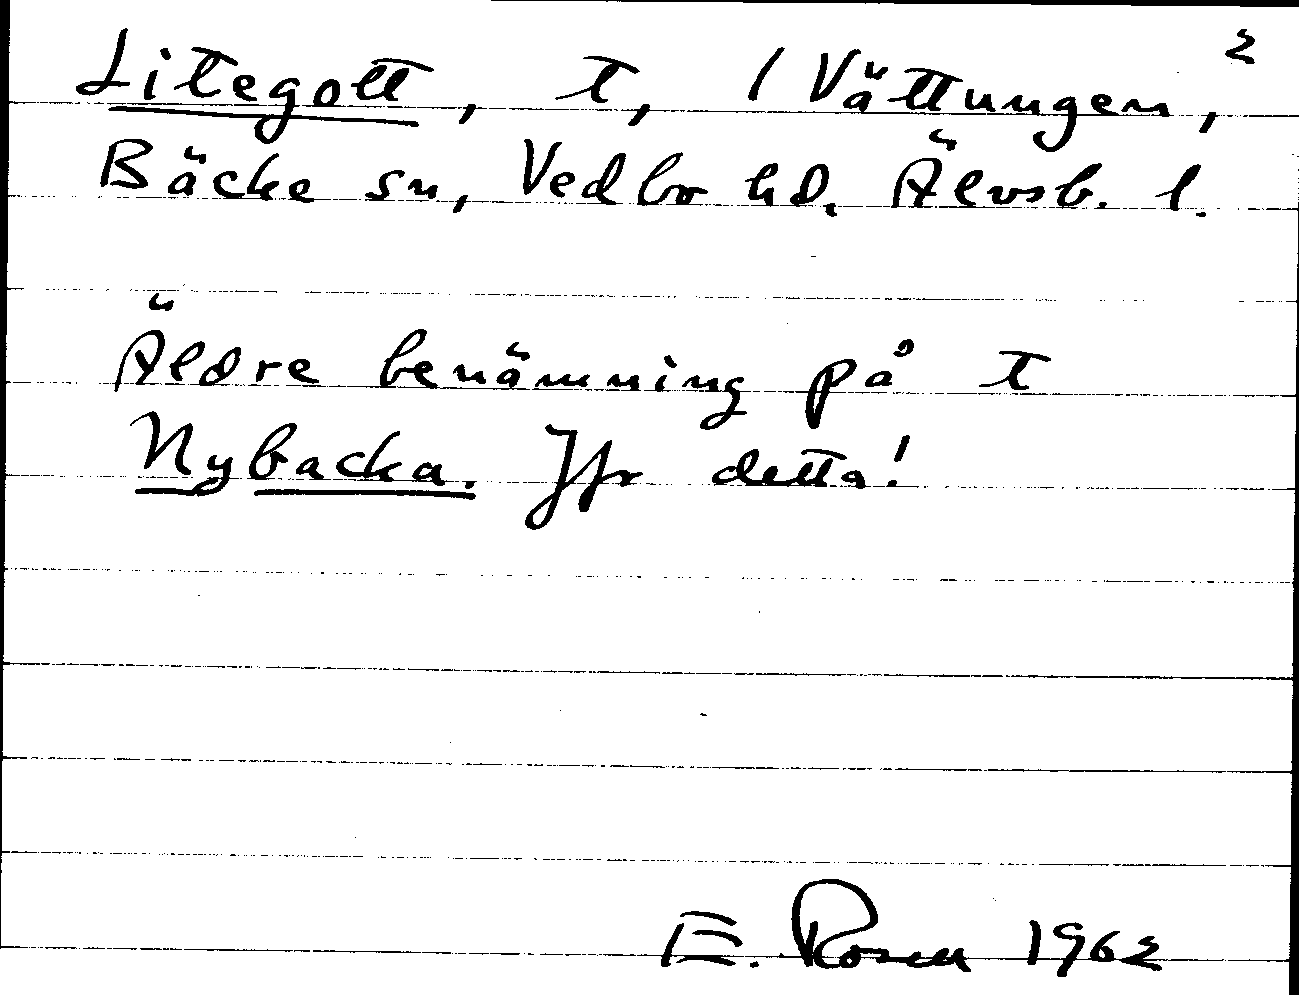 2
Litegott, t, 1 Vättungen,
Bäcke sn, Vedbo hd. Älvsb. l.
Äldre benämning på t
Nybacka. Jfr detta!
E. Rosen 1962